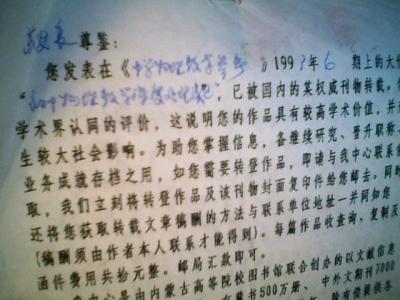 尊鉴：
您发表在《中学物理教学参考》1993年6期上的大作
"初中物理教学",已被国内的某权威刊物转载。
学术界认同的评价，这说明您的作品具有较高学术价值，并
生较大社会影响。为助您掌握信息，备继续研究、晋升职称、
业务成就存档之用，如您需要转登作品，即请与我中心联系
取，我们立刻将转登作品及该刊物封面复印件给您邮去。同时
还将您获取转载文章稿酬的方法与联系单位地址一并同知您
(稿酬须由作者本人联系才能得到)。每篇作品收查询、复制及
函件费用共拾元整。邮局汇款即可。
中心是由内蒙古高等院校图书馆联合创办的以文献信息
藏书500万册、中外文期刊7000